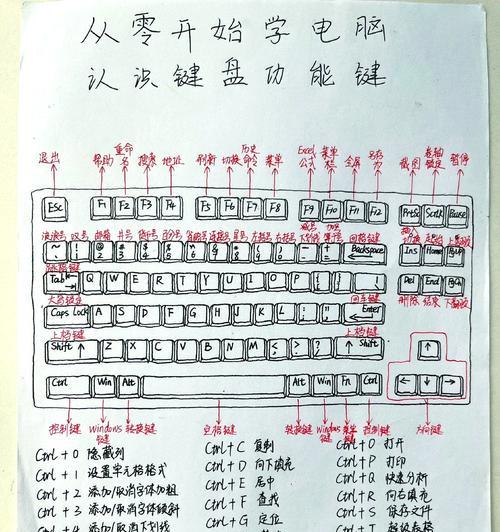 从零开始学电脑
认识键盘功能键
退出 帮助 重命名 搜索 地址 刷新 切换 历史命令 菜单 Excel公式 菜单栏 全屏 另存为 截图 卷轴锁定 暂停
Esc F1 F2 F3 F4 F5 F6 F7 F8 F9 F10 F11 F12 PrtSc Scrlk Pause
波浪号 叹号 邮箱 井号 货币号 百分号 省略号 连接号 星号 左括号 右括号 减号下划线 加号等号 回格键 插入切换 起始 上翻页
~ ! @ 2 # 3 $ 4 % 5 ^ 6 & 7 * 8 ( 9 ) 0 - + = Backspace Ins Home PgUp
Tab Q W E R T Y U I O P Del End PgDn
大写锁定 回车键 删除 结束 下翻页
Caps Lock A S D F G H J K L Enter
上档键 上档键
Shift ↑ Z X C V B N M ↑ Shift ↑
Ctrl Win Alt Alt Win Fn Ctrl ← ↓ →
控制键 Windows键 转换键 空格键 转换键 Windows键 菜单键 控制键 方向键
Ctrl + 0 隐藏列 Ctrl + C 复制 Ctrl + O 打开
Ctrl + 1 设置单元格格式 Ctrl + D 向下填充 Ctrl + P 打印
Ctrl + 2 添加/取消字体加粗 Ctrl + E 居中 Ctrl + Q 快速分析
Ctrl + 3 添加/取消字体倾斜 Ctrl + F 查找 Ctrl + R 向右填充
Ctrl + 4 添加/取消下划线 Ctrl + G 定位 Ctrl + S 保存文件